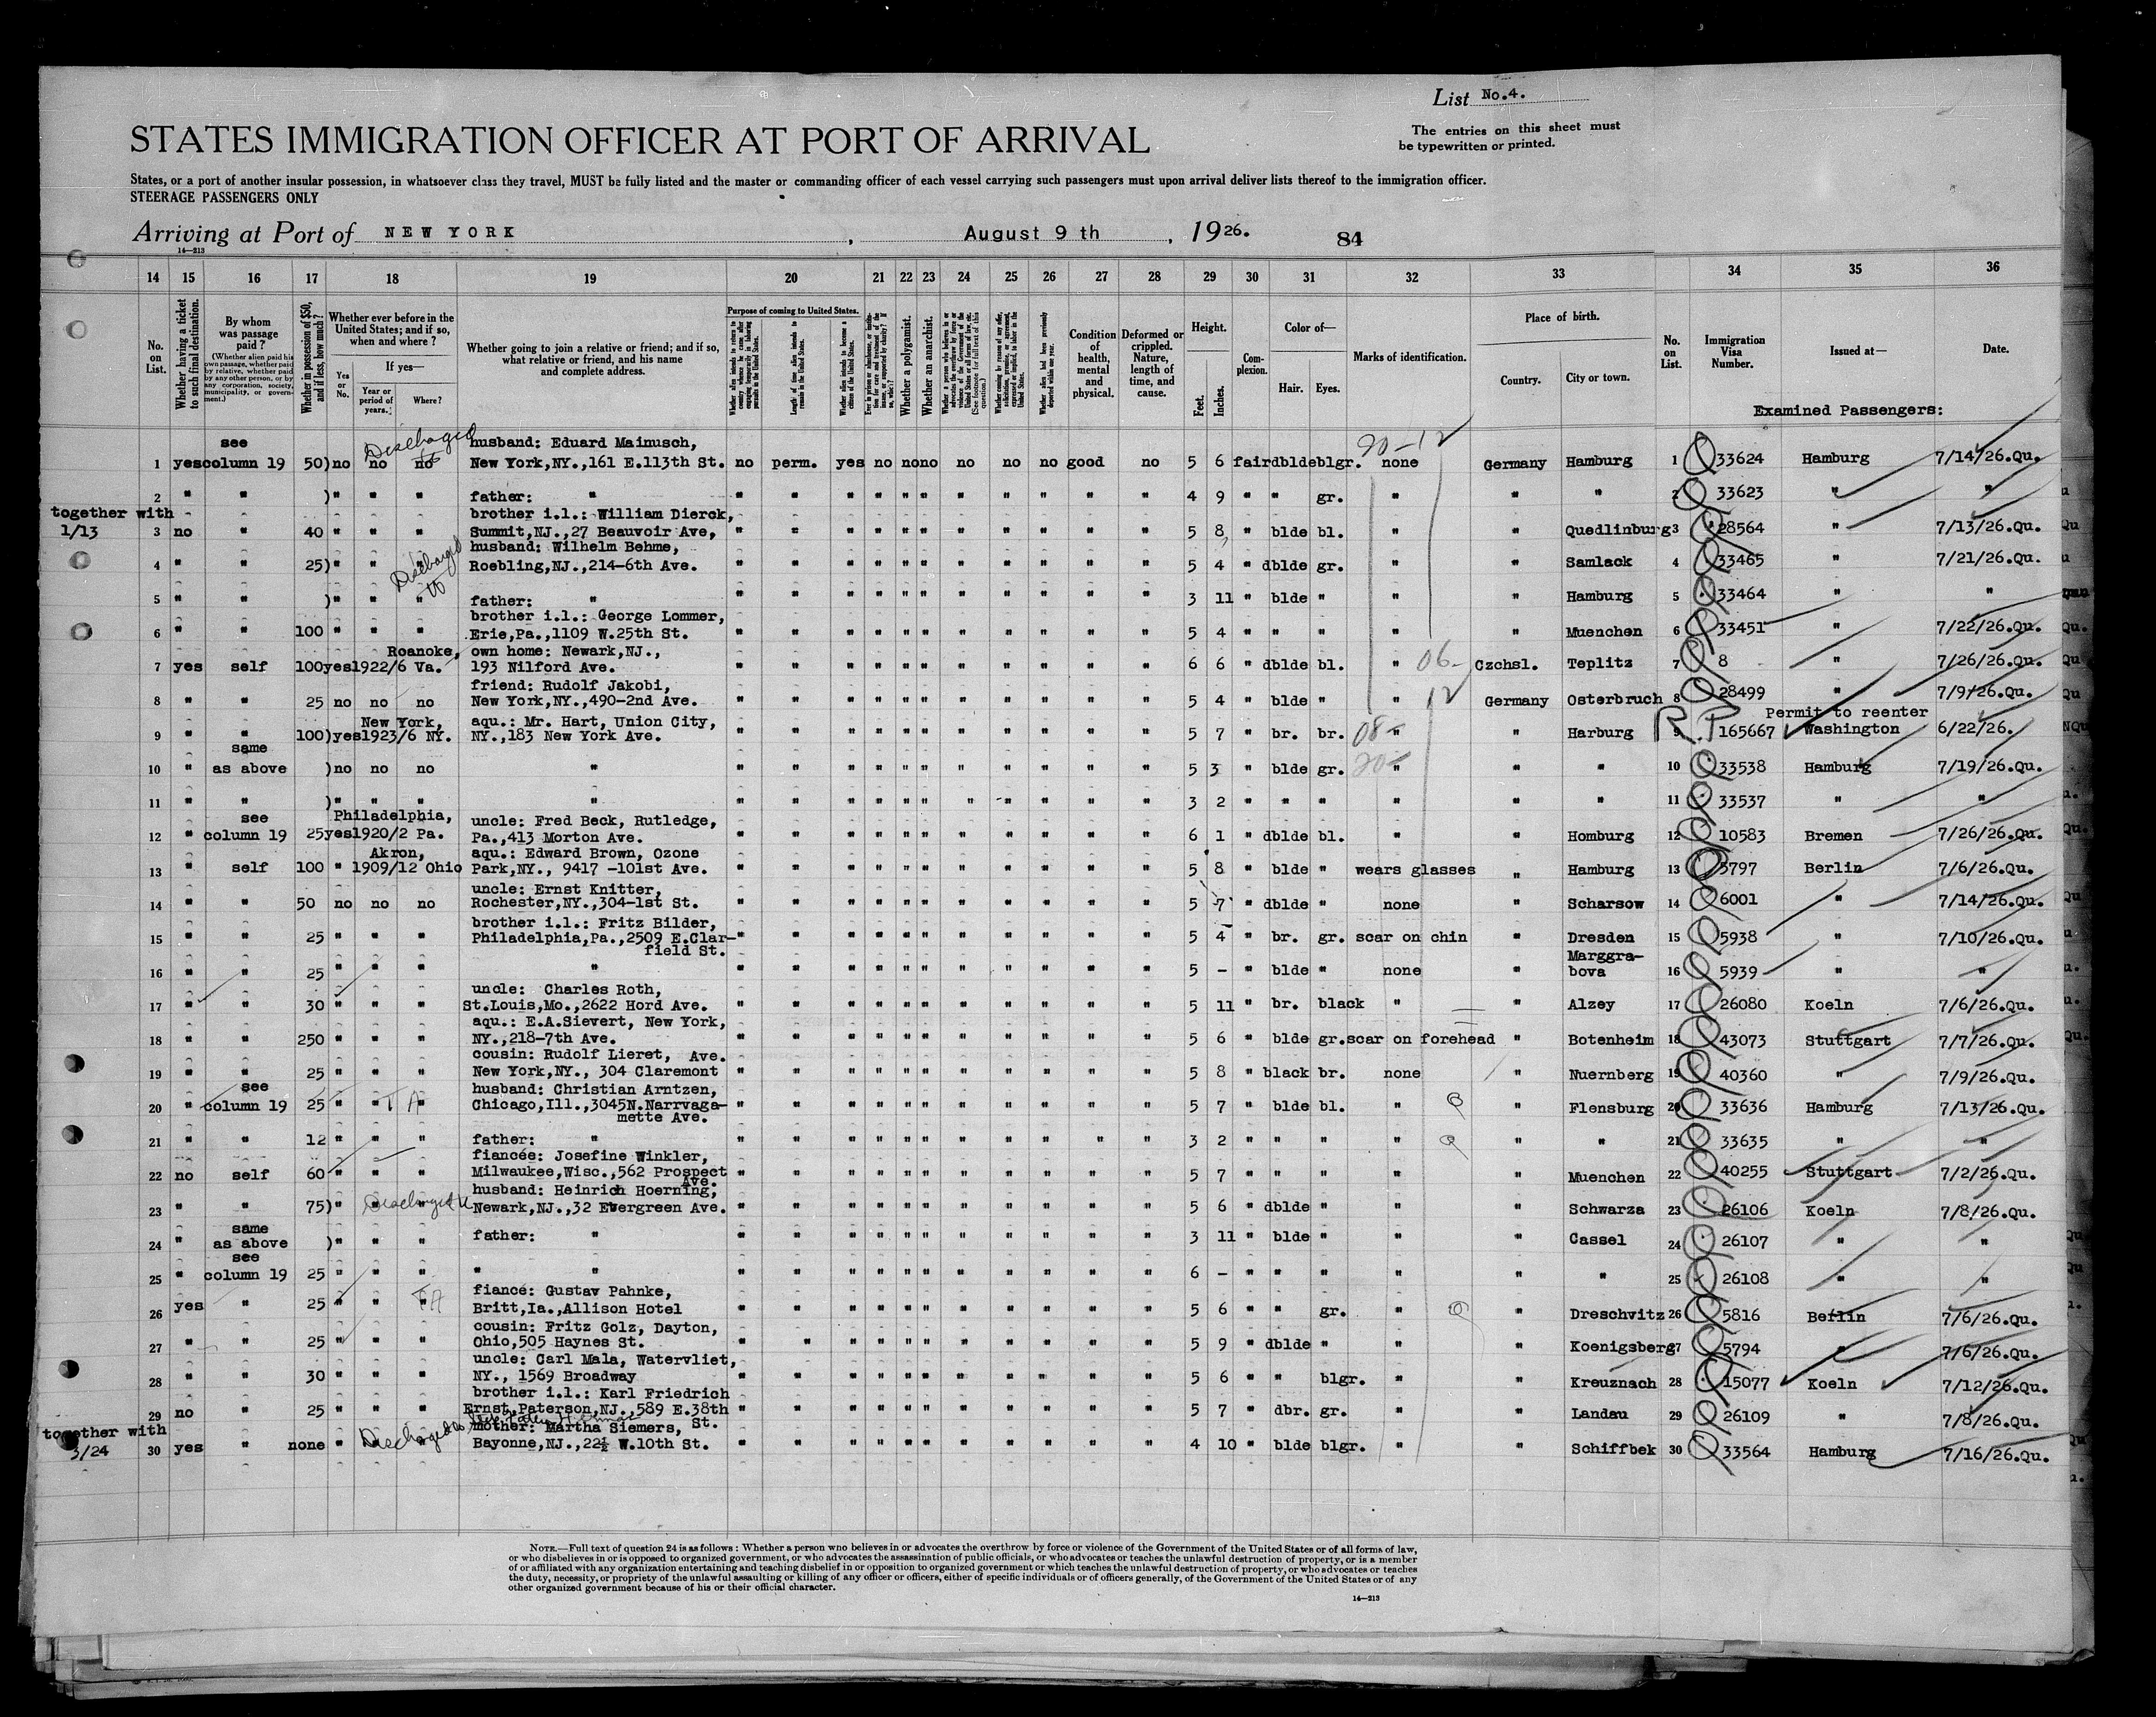 List No.4.
The entries on this sheet must
be typewritten or printed.
STATES IMMIGRATION OFFICER AT PORT OF ARRIVAL
States, or a port of another insular possession, in whatsoever class they travel, MUST be fully listed and the master or commanding officer of each vessel carrying such passengers must upon arrival deliver lists thereof to the immigration officer.
STEERAGE PASSENGERS ONLY
Arriving at Port of NEW YORK, August 9 th, 1926. 84
14—213
14 15 16 17 18 19 20 21 22 23 24 25 26 27 28 29 30 31 32 33 34 35 36
No. on List.
Whether having a ticket to such final destination.
By whom was passage paid?
(Whether alien paid his own passage, whether paid by relative, whether paid by any other person, or by any corporation, society, municipality, or government.)
Whether in possession of $50, and if less, how much?
Whether ever before in the United States; and if so, when and where?
Yes or No.
If yes—
Year or period of years.
Where?
Whether going to join a relative or friend; and if so, what relative or friend, and his name and complete address.
Purpose of coming to United States.
Length of time alien intends to remain in the United States.
Whether alien intends to become a citizen of the United States.
Whether a polygamist.
Whether an anarchist.
Condition of health, mental and physical.
Deformed or crippled. Nature, length of time, and cause.
Height.
Feet. Inches.
Complexion.
Color of—
Hair. Eyes.
Marks of identification.
Place of birth.
Country. City or town.
No. on List.
Immigration Visa Number.
Issued at—
Date.
Examined Passengers:
see Discharged husband: Eduard Mainusch, 20-12
1 yes column 19 50) no no no New York,NY.,161 E.113th St. no perm. yes no no no no no no good no 5 6 fair dblde blgr. none Germany Hamburg 1 Q 33624 Hamburg 7/14/26.Qu.
2 " " )" " " father: " " " " " " " " " " " " 4 9 " " gr. " " " 2 Q 33623 " "
together with brother i.l.: William Dierck,
1/13 3 no " 40 " " " Summit,NJ.,27 Beauvoir Ave, " " " " " " " " " " " 5 8 " blde bl. " " Quedlinburg 3 Q 28564 " 7/13/26.Qu.
Discharged husband: Wilhelm Behme,
4 " " 25) " " " Roebling,NJ.,214-6th Ave. " " " " " " " " " " " 5 4 " dblde gr. " " Samlack 4 Q 33465 " 7/21/26.Qu.
5 " " )" " " father: " " " " " " " " " " " " 3 11 " blde " " " Hamburg 5 Q 33464 " "
brother i.l.: George Lommer,
6 " " 100 " " " Erie,Pa.,1109 W.25th St. " " " " " " " " " " " 5 4 " " " " " Muenchen 6 Q 33451 " 7/22/26.Qu.
Roanoke, own home: Newark,NJ.,
7 yes self 100 yes 1922/6 Va. 193 Nilford Ave. " " " " " " " " " " " 6 6 " dblde bl. " 06- Czchsl. Teplitz 7 Q 8 " 7/26/26.Qu.
friend: Rudolf Jakobi,
8 " " 25 no no no New York,NY.,490-2nd Ave. " " " " " " " " " " " 5 4 " blde " " 12 Germany Osterbruch 8 Q 28499 " 7/9/26.Qu.
New York, aqu.: Mr. Hart, Union City, Permit to reenter
9 " " 100) yes 1923/6 NY. NY.,183 New York Ave. " " " " " " " " " " " 5 7 " br. br. 08- " " Harburg 9 R.P 165667 Washington 6/22/26.
same
10 " as above ) no no no " " " " " " " " " " " " 5 3 " blde gr. 20- " " " 10 Q 33538 Hamburg 7/19/26.Qu.
11 " " )" " " " " " " " " " " " " " " 3 2 " " " " " " 11 Q 33537 " "
see Philadelphia, uncle: Fred Beck, Rutledge,
12 " column 19 25 yes 1920/2 Pa. Pa.,413 Morton Ave. " " " " " " " " " " " 6 1 " dblde bl. " " Homburg 12 Q 10583 Bremen 7/26/26.Qu.
Akron, aqu.: Edward Brown, Ozone
13 " self 100 " 1909/12 Ohio Park,NY., 9417 -101st Ave. " " " " " " " " " " " 5 8 " blde " wears glasses " Hamburg 13 Q 5797 Berlin 7/6/26.Qu.
uncle: Ernst Knitter,
14 " " 50 no no no Rochester,NY.,304-1st St. " " " " " " " " " " " 5 7 " dblde " none " Scharsow 14 Q 6001 " 7/14/26.Qu.
brother i.l.: Fritz Bilder,
15 " " 25 " " " Philadelphia,Pa.,2509 E.Clar- " " " " " " " " " " " 5 4 " br. gr. scar on chin " Dresden 15 Q 5938 " 7/10/26.Qu.
field St. Marggra-
16 " " 25 " " " " " " " " " " " " " " " 5 - " blde " none " bova 16 Q 5939 " "
uncle: Charles Roth,
17 " " 30 " " " St.Louis,Mo.,2622 Hord Ave. " " " " " " " " " " " 5 11 " br. black " " Alzey 17 Q 26080 Koeln 7/6/26.Qu.
aqu.: E.A.Sievert, New York,
18 " " 250 " " " NY.,218-7th Ave. " " " " " " " " " " " 5 6 " blde gr. scar on forehead " Botenheim 18 Q 43073 Stuttgart 7/7/26.Qu.
cousin: Rudolf Lieret, Ave.
19 " " 25 " " " New York,NY., 304 Claremont " " " " " " " " " " " 5 8 " black br. none " Nuernberg 19 Q 40360 " 7/9/26.Qu.
see husband: Christian Arntzen,
20 " column 19 25 " " TA " Chicago,Ill.,3045N.Narrvaga- " " " " " " " " " " " 5 7 " blde bl. " " Flensburg 20 Q 33636 Hamburg 7/13/26.Qu.
mette Ave.
21 " " 12 " " " father: " " " " " " " " " " " " 3 2 " " " " " " 21 Q 33635 " "
fiancée: Josefine Winkler,
22 no self 60 " " " Milwaukee,Wisc.,562 Prospect " " " " " " " " " " " 5 7 " " " " " Muenchen 22 Q 40255 Stuttgart 7/2/26.Qu.
Ave.
husband: Heinrich Hoerning,
23 " " 75) " Discharged " Newark,NJ.,32 Evergreen Ave. " " " " " " " " " " " 5 6 " dblde " " " Schwarza 23 Q 26106 Koeln 7/8/26.Qu.
same
24 " as above )" " " father: " " " " " " " " " " " " 3 11 " blde " " " Cassel 24 Q 26107 " "
see
25 " column 19 25 " " " " " " " " " " " " " " " " 6 - " " " " " " 25 Q 26108 " "
fiancé: Gustav Pahnke,
26 yes " 25 " " TA " Britt,Ia.,Allison Hotel " " " " " " " " " " " 5 6 " " gr. " " Dreschvitz 26 Q 5816 Berlin 7/6/26.Qu.
cousin: Fritz Golz, Dayton,
27 " " 25 " " " Ohio,505 Haynes St. " " " " " " " " " " " 5 9 " dblde " " " Koenigsberg 27 Q 5794 " 7/6/26.Qu.
uncle: Carl Mala, Watervliet,
28 " " 30 " " " NY., 1569 Broadway " " " " " " " " " " " 5 6 " " blgr. " " Kreuznach 28 Q 15077 Koeln 7/12/26.Qu.
brother i.l.: Karl Friedrich
29 no " 25 " " " Ernst,Paterson,NJ.,589 E.38th " " " " " " " " " " " 5 7 " dbr. gr. " " Landau 29 Q 26109 " 7/8/26.Qu.
St.
together with Discharged mother: Martha Siemers,
3/24 30 yes " none " " " Bayonne,NJ.,22½ W.10th St. " " " " " " " " " " " 4 10 " blde blgr. " " Schiffbek 30 Q 33564 Hamburg 7/16/26.Qu.
NOTE.—Full text of question 24 is as follows: Whether a person who believes in or advocates the overthrow by force or violence of the Government of the United States or of all forms of law,
or who disbelieves in or is opposed to organized government, or who advocates the assassination of public officials, or who advocates or teaches the unlawful destruction of property, or is a member
of or affiliated with any organization entertaining and teaching disbelief in or opposition to organized government or which teaches the unlawful destruction of property, or who advocates or teaches
the duty, necessity, or propriety of the unlawful assaulting or killing of any officer or officers, either of specific individuals or of officers generally, of the Government of the United States or of any
other organized government because of his or their official character.
14—213